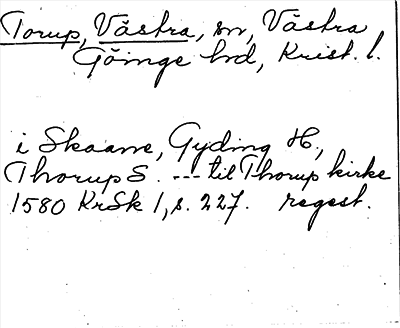 Torup, Västra, sn, Västra
Göinge hd, Krist. l.
i Skaane, Gyding H.,
Thorup S. --- til Thorup kirke
1580 KrSk 1, s. 227. regest.